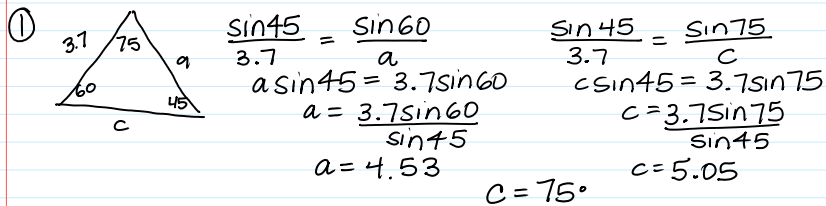 ①
3.7 75 a
60 45
c
sin45/3.7 = sin60/a
a sin45 = 3.7sin60
a = 3.7sin60/sin45
a = 4.53
sin45/3.7 = sin75/c
c sin45 = 3.7sin75
c = 3.7sin75/sin45
c = 5.05
C = 75°